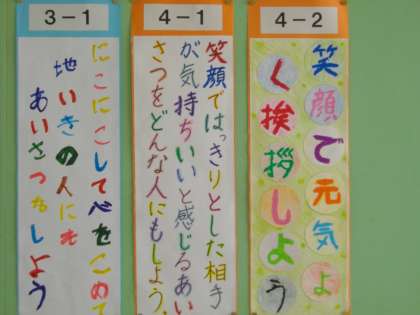 3-1
にこにこして心をこめて
地いきの人にも
あいさつをしよう
4-1
笑顔ではっきりとした相手
が気持ちいいと感じるあい
さつをどんな人にもしよう。
4-2
笑顔で元気よ
く挨拶しよう